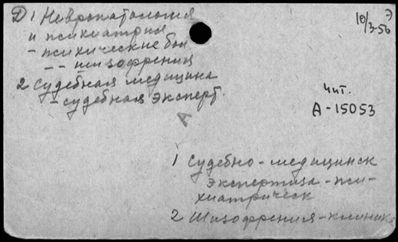 Д) 1 Невропатология
и психиатрия
- психические бол
- - шизофрения
2 Судебная медицина
- судебная эксперт.
10/3-56
чит.
А-15053
А
1 Судебно-медицинск
экспертиза-пси-
хиатрическ
2 Шизофрения-клиника